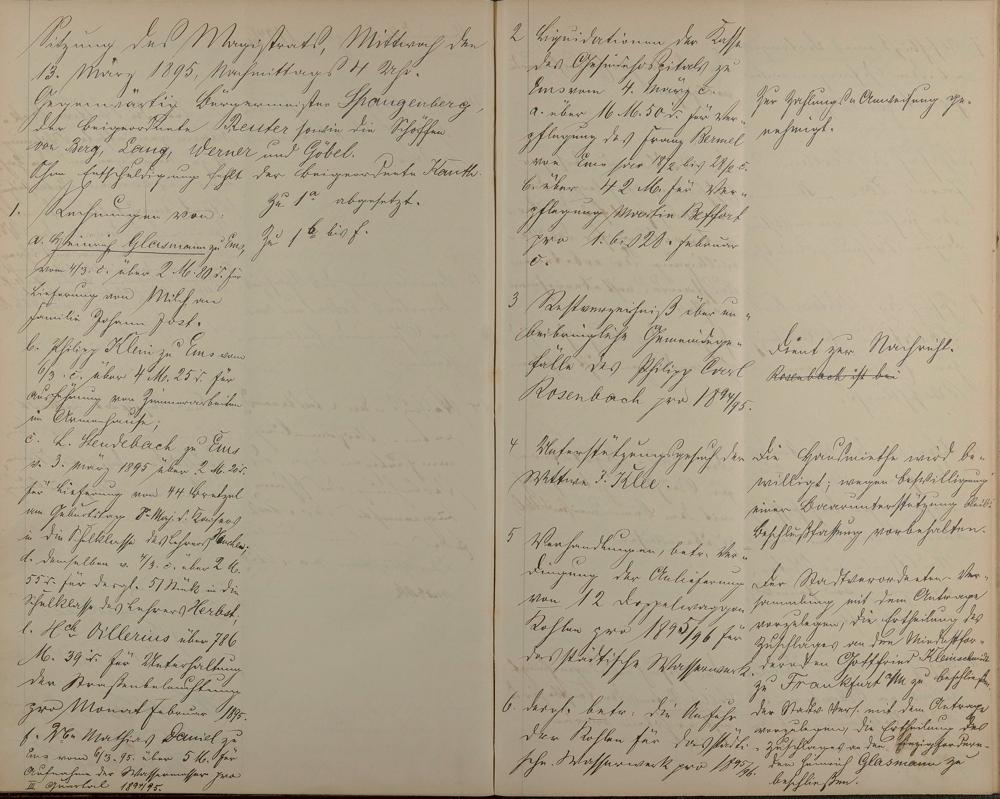 Sitzung des Magistrats, Mittwoch den
13. März 1895, Nachmittags 4 Uhr.
Gegenwärtig Bürgermeister Spangenberg,
der Beigeordnete Reuter sowie die Schöffen
von Berg, Lang, Werner und Göbel.
Ohne Entschuldigung fehlt der Beigeordnete Kauth.
1. Rechnungen von:
a. Heinrich Glasmann zu Ems,
vom 4/3. c. über 2 M. 80 d. für
Lieferung von Milch an
Familie Johann Jost.
b. Philipp Klein zu Ems vom
6/3. c. über 4 M. 25 d. für
Ausführung von Zimmerarbeiten
im Armenhause;
c. L. Heudebach zu Ems
v. 3. März 1895 über 2 M. 20 d.
für Lieferung von 44 Bretzel
am Geburtstag Sr. Maj. d. Kaisers
in die Schulklasse des Lehrers
d. demselben v. 4/3. c. über 2 M.
55 d. für dergl. 51 Stück in die
Schulklasse des Lehrers Herbst,
e. Hch Villerius über 786
M. 39 d. für Unterhaltung
der Straßenbeleuchtung
pro Monat Februar 1895.
f. Mathias Daniel zu
Ems vom 6/3. 95. über 5 M. für
Aufnahme der Wassermesser pro
III Quartal 1894/95.
Zu 1a abgesetzt.
Zu 1b bis f.
2 Liquidationen der Kasse
des Gemeindehospitals zu
Ems vom 4. März c.
a. über 16 M. 50 d. für Ver-
pflegung des Franz Bermel
von Ems
b. über 42 M. für Ver-
pflegung Martin Beffort
pro 1. bis 28. Februar
c.
Zur Zahlung u Anweisung ge-
nehmigt.
3 Restverzeichniß über un-
beibringliche Gemeindege-
fälle des Philipp Carl
Rosenbach pro 1894/95.
Dient zur Nachricht.
Rosenbach ist bei
4 Unterstützungsgesuch der
Wittwe J. Klle.
Die Hausmiethe wird be-
willigt; wegen Bewilligung
einer Baarunterstützung bleibt
Beschlußfassung vorbehalten.
5 Verhandlungen, betr. Ver-
dingung der Anlieferung
von 12 Doppelwaggon
Kohlen pro 1895/96 für
das städtische Wasserwerk.
Der Stadtverordneten-Ver-
sammlung mit dem Antrage
vorzulegen, die Ertheilung des
Zuschlages an den Mindestfor-
dernden Gottfried Kleinschmidt
zu Frankfurt /M. zu beschließen.
6. dergl. betr. die Anfuhr
der Kohlen für das städti-
sche Wasserwerk pro 1895/96.
der Stadtv. Vers. mit dem Antrage
vorzulegen, die Ertheilung des
Zuschlages an den Einzigfordern-
den Heinrich Glasmann zu
beschließen.